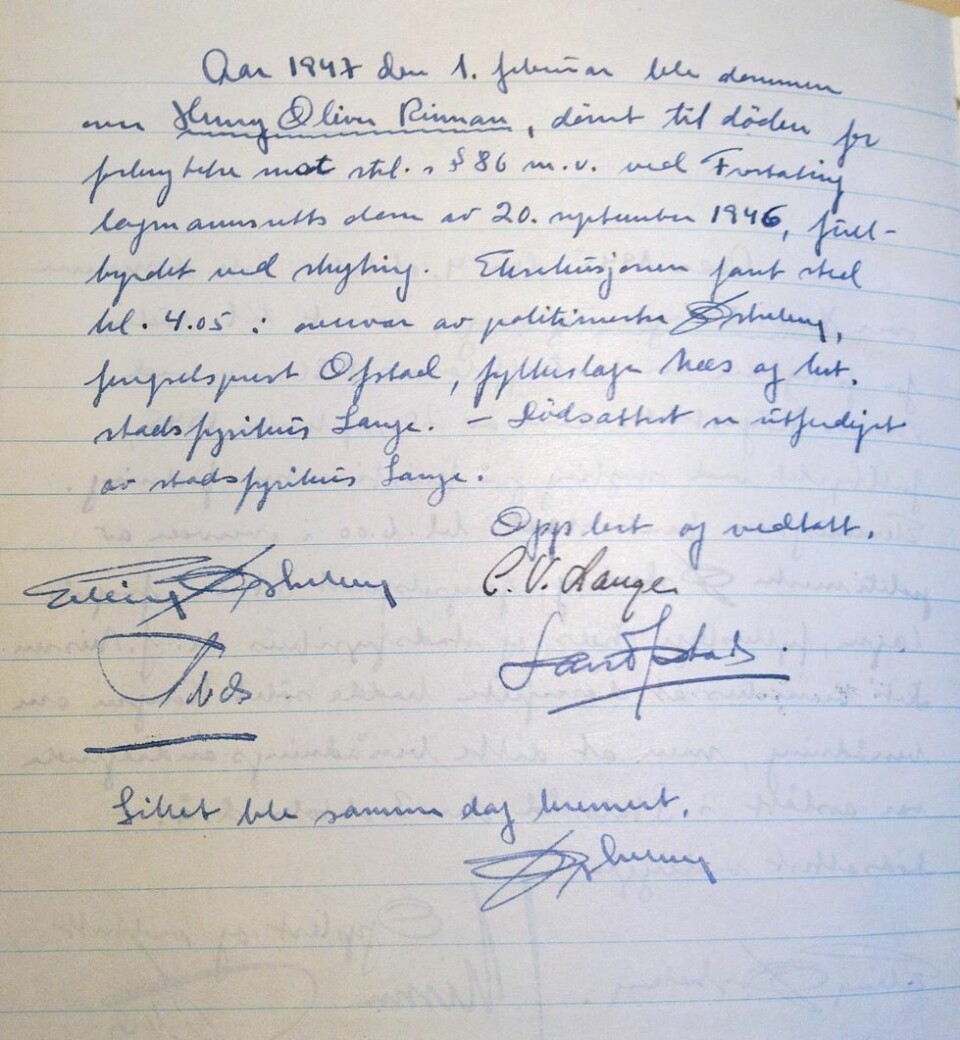 Aar 1947 den 1. februar ble dommen
over Henry Oliver Rinnan, dömt til döden for
forbrytelse mot strl. s § 86 m.v. ved Frostating
lagmannsretts dom av 20. september 1946, full-
byrdet ved skyting. Eksekusjonen fant sted
kl. 4.05 i nærvær av politimester
fengselsprest Ofstad, fylkeslege Næs og kst.
stadsfysikus Lange. — Dödsattest er utferdiget
av stadsfysikus Lange.
Opplest og vedtatt.
C. V. Lange
Næs
Liket ble samme dag kremert.